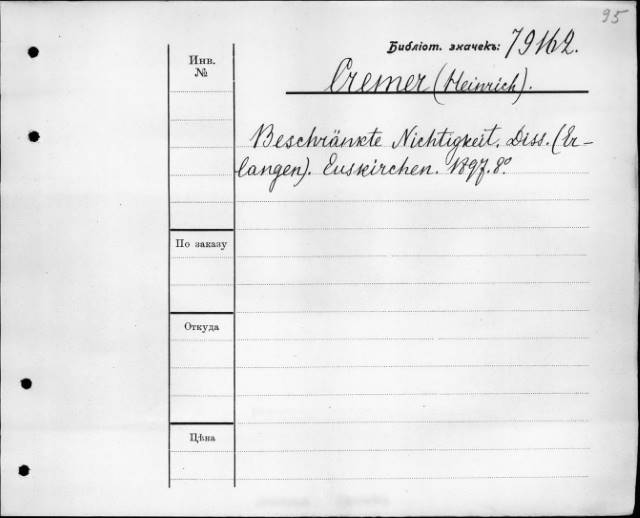 95
Библіот. значекъ: 79162.
Инв. №
Cremer (Heinrich).
Beschränkte Nichtigkeit. Diss. (Er-
langen). Euskirchen. 1897. 8°
По заказу
Откуда
Цѣна